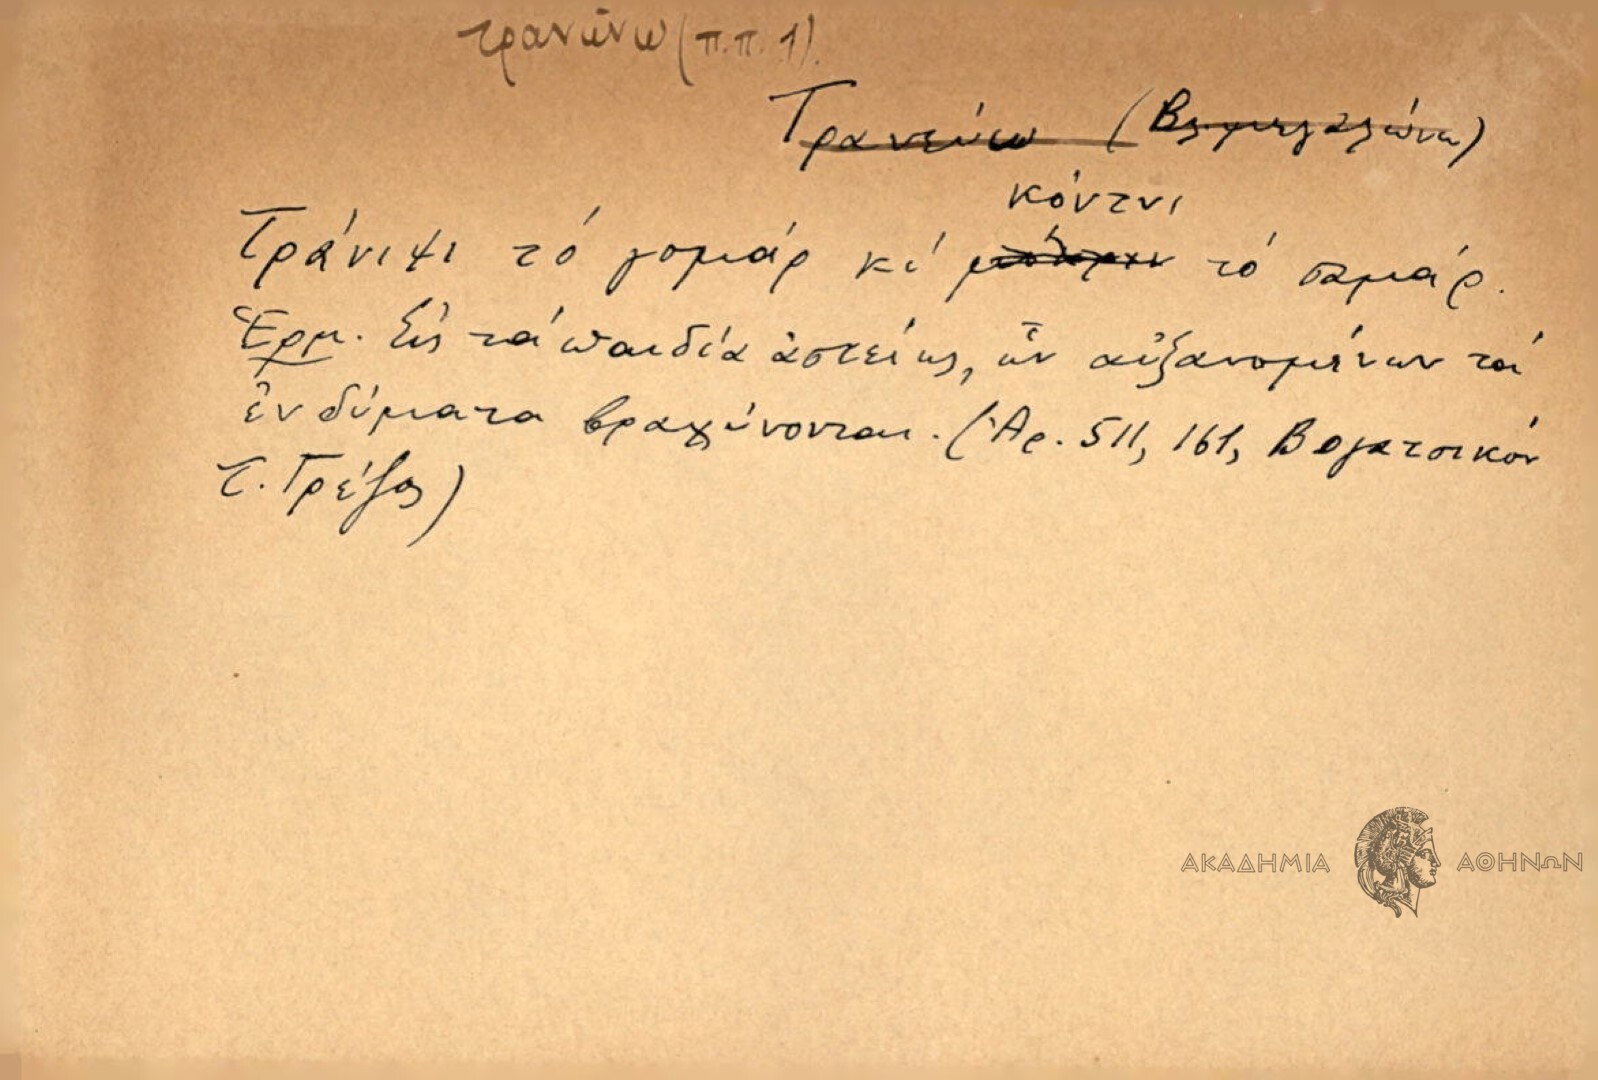 τρανώνω (π.π. 1).
Τρανεύω (Βλ. μεγαλώνω)
κόντνι
Τράνιψι τό γομάρ κί τό σαμάρ.
Ἑρμ. Εἰς τά παιδία ἀστείως, ὧν αὐξανομένων τά
ἐνδύματα βραχύνονται. (Ἀρ. 511, 161, Βογατσικόν
Τ. Γρέζος)
ΑΚΑΔΗΜΙΑ ΑΘΗΝΩΝ